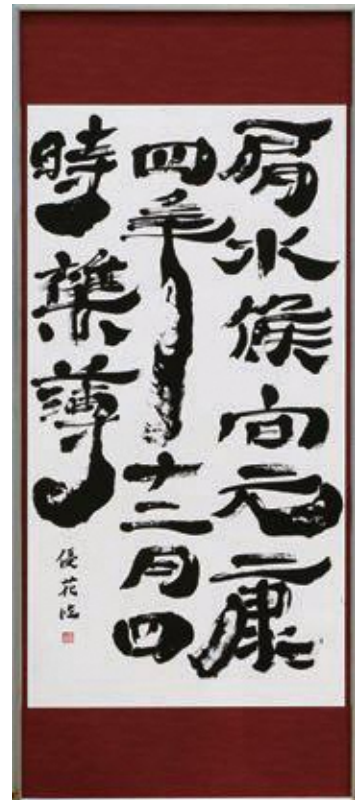 肩水候官元康
四年十二月四
時雜簿
優花臨